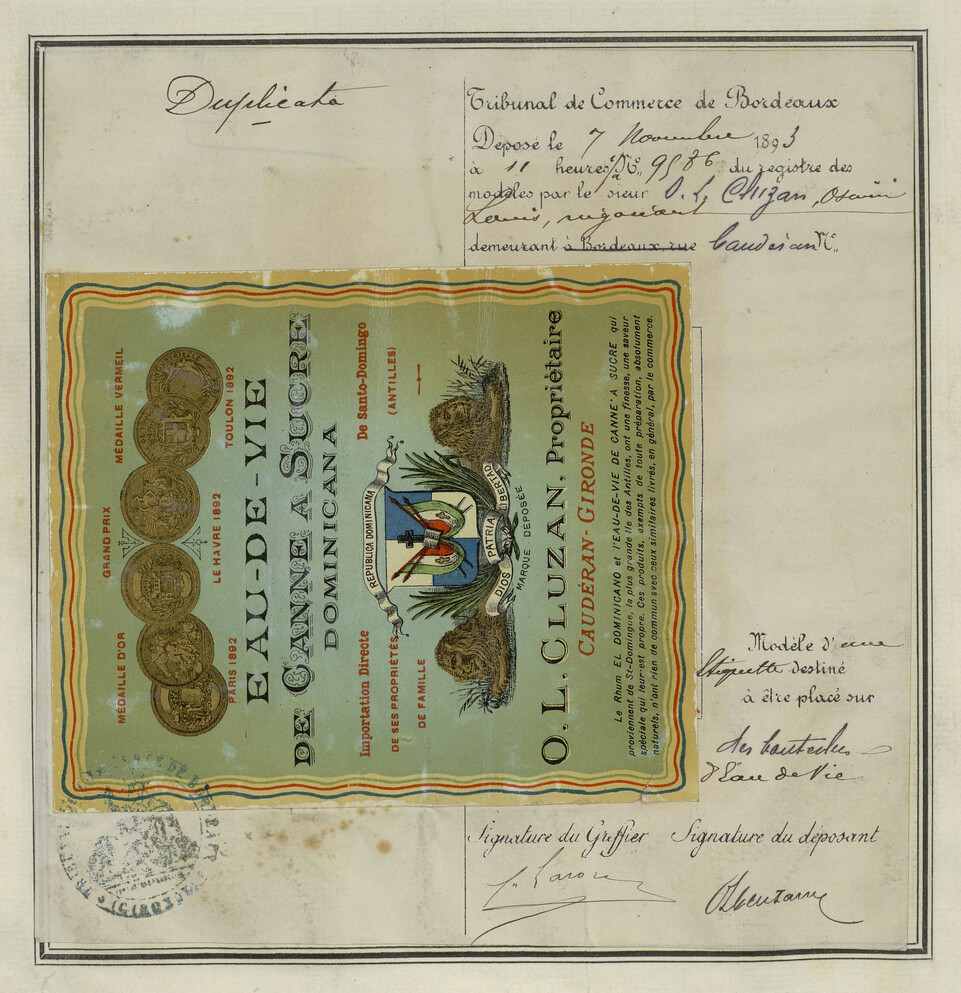 Duplicata
Tribunal de Commerce de Bordeaux
Déposé le 7 Novembre 1893
à 11 heures Nº 9586 du registre des
modèles par le sieur O. L. Cluzan, Oswin
Louis, négociant
demeurant à Bordeaux rue Caudéran Nº
MÉDAILLE D'OR
GRAND PRIX
MÉDAILLE VERMEIL
PARIS 1892
LE HAVRE 1892
TOULON 1892
EAU-DE-VIE
DE CANNE A SUCRE
DOMINICANA
Importation Directe
DE SES PROPRIÉTÉS
DE FAMILLE
De Santo-Domingo
(ANTILLES)
REPUBLICA DOMINICANA
DIOS PATRIA LIBERTAD
MARQUE DÉPOSÉE
O. L. CLUZAN, Propriétaire
CAUDÉRAN-GIRONDE
Le Rhum EL DOMINICANO et l'EAU-DE-VIE DE CANNE A SUCRE qui
proviennent de St-Domingue, la plus grande île des Antilles, ont une finesse, une saveur
spéciale qui leur est propre. Ces produits, exempts de toute préparation, absolument
naturels, n'ont rien de commun avec ceux similaires livrés, en général, par le commerce.
Modèle d'une
étiquette destiné
à être placé sur
des bouteilles
d'Eau de Vie
Signature du Greffier Signature du déposant